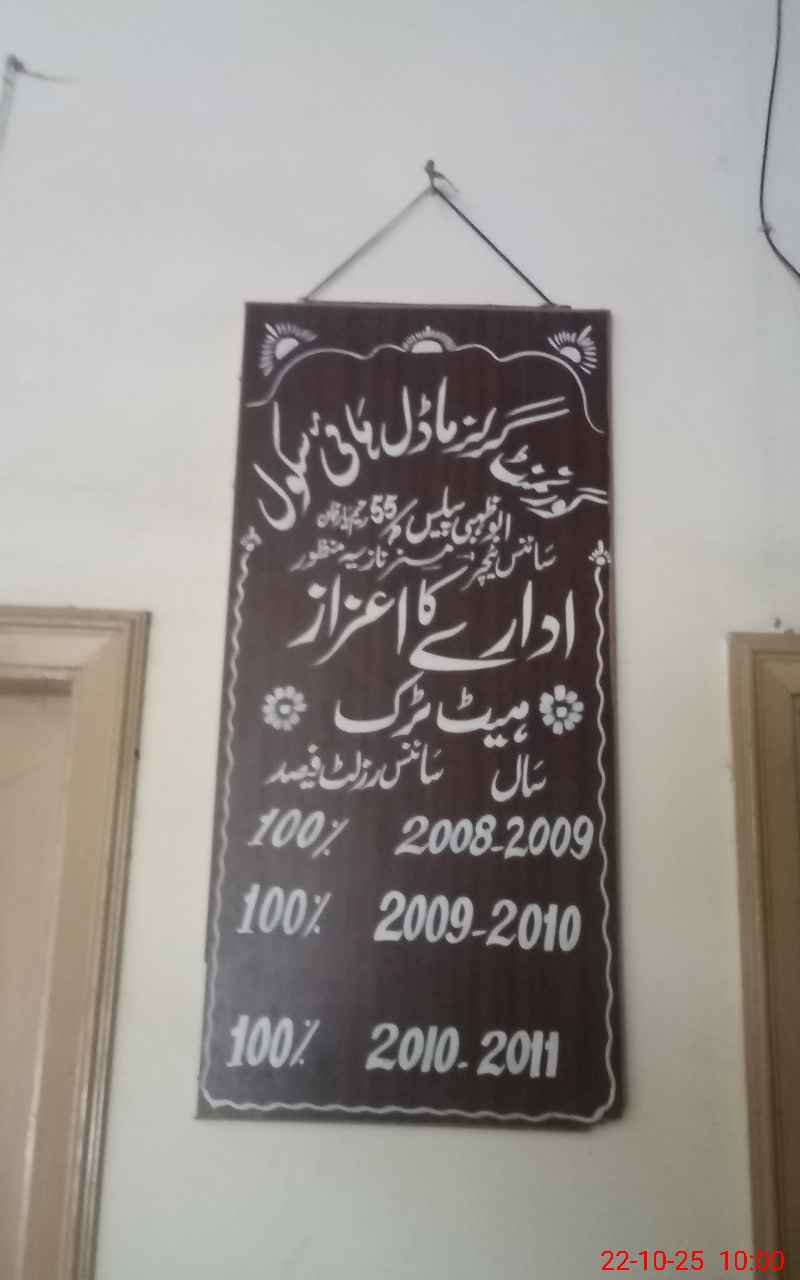 گورنمنٹ گرلز ماڈل ہائی سکول
ابوظہبی پیلس 55 رحیم یار خان
سائنس ٹیچر مسز نازیہ منظور
ادارے کا اعزاز
ہیٹ ٹرک
سال سائنس رزلٹ فیصد
2008-2009 100%
2009-2010 100%
2010-2011 100%
22-10-25 10:00